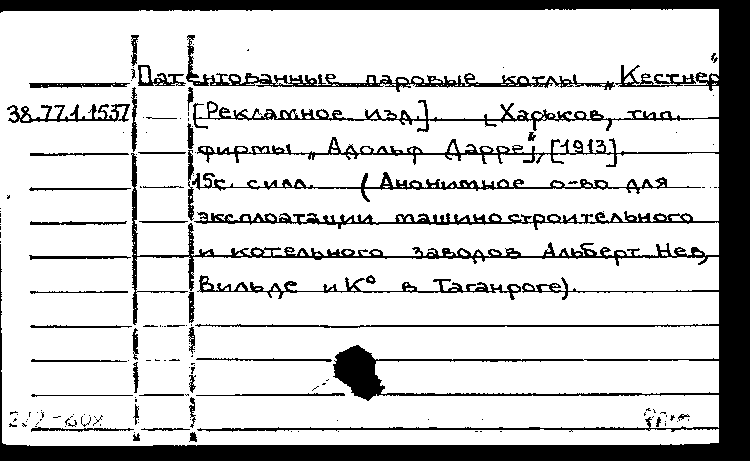 Патентованные паровые котлы „Кестнер"
38.77.1.1537 [Рекламное изд.]. Харьков, тип.
фирмы „Адольф Дарре", [1913].
15с. силл. (Анонимное о-во для
эксплоатации машиностроительного
и котельного заводов Альберт Нев,
Вильде и К° в Таганроге).